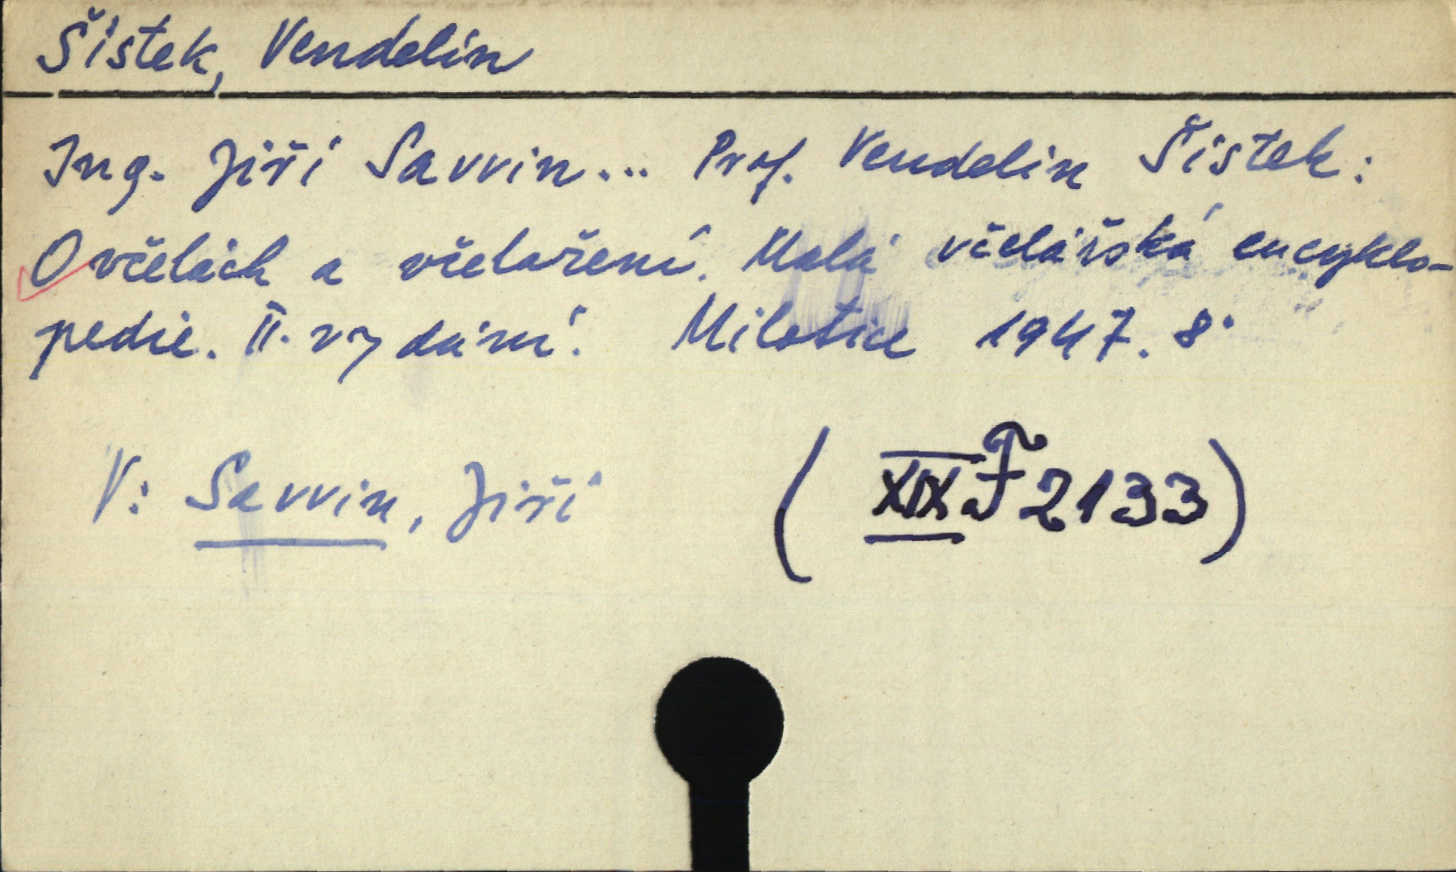 Šístek, Vendelín
Ing. Jiří Savvin... Prof. Vendelín Šístek:
O včelách a včelaření. Malá včelářská encyklo-
pedie. II. vydání. Milotice 1947. 8°
V: Savvin, Jiří
(XIX F 2133)